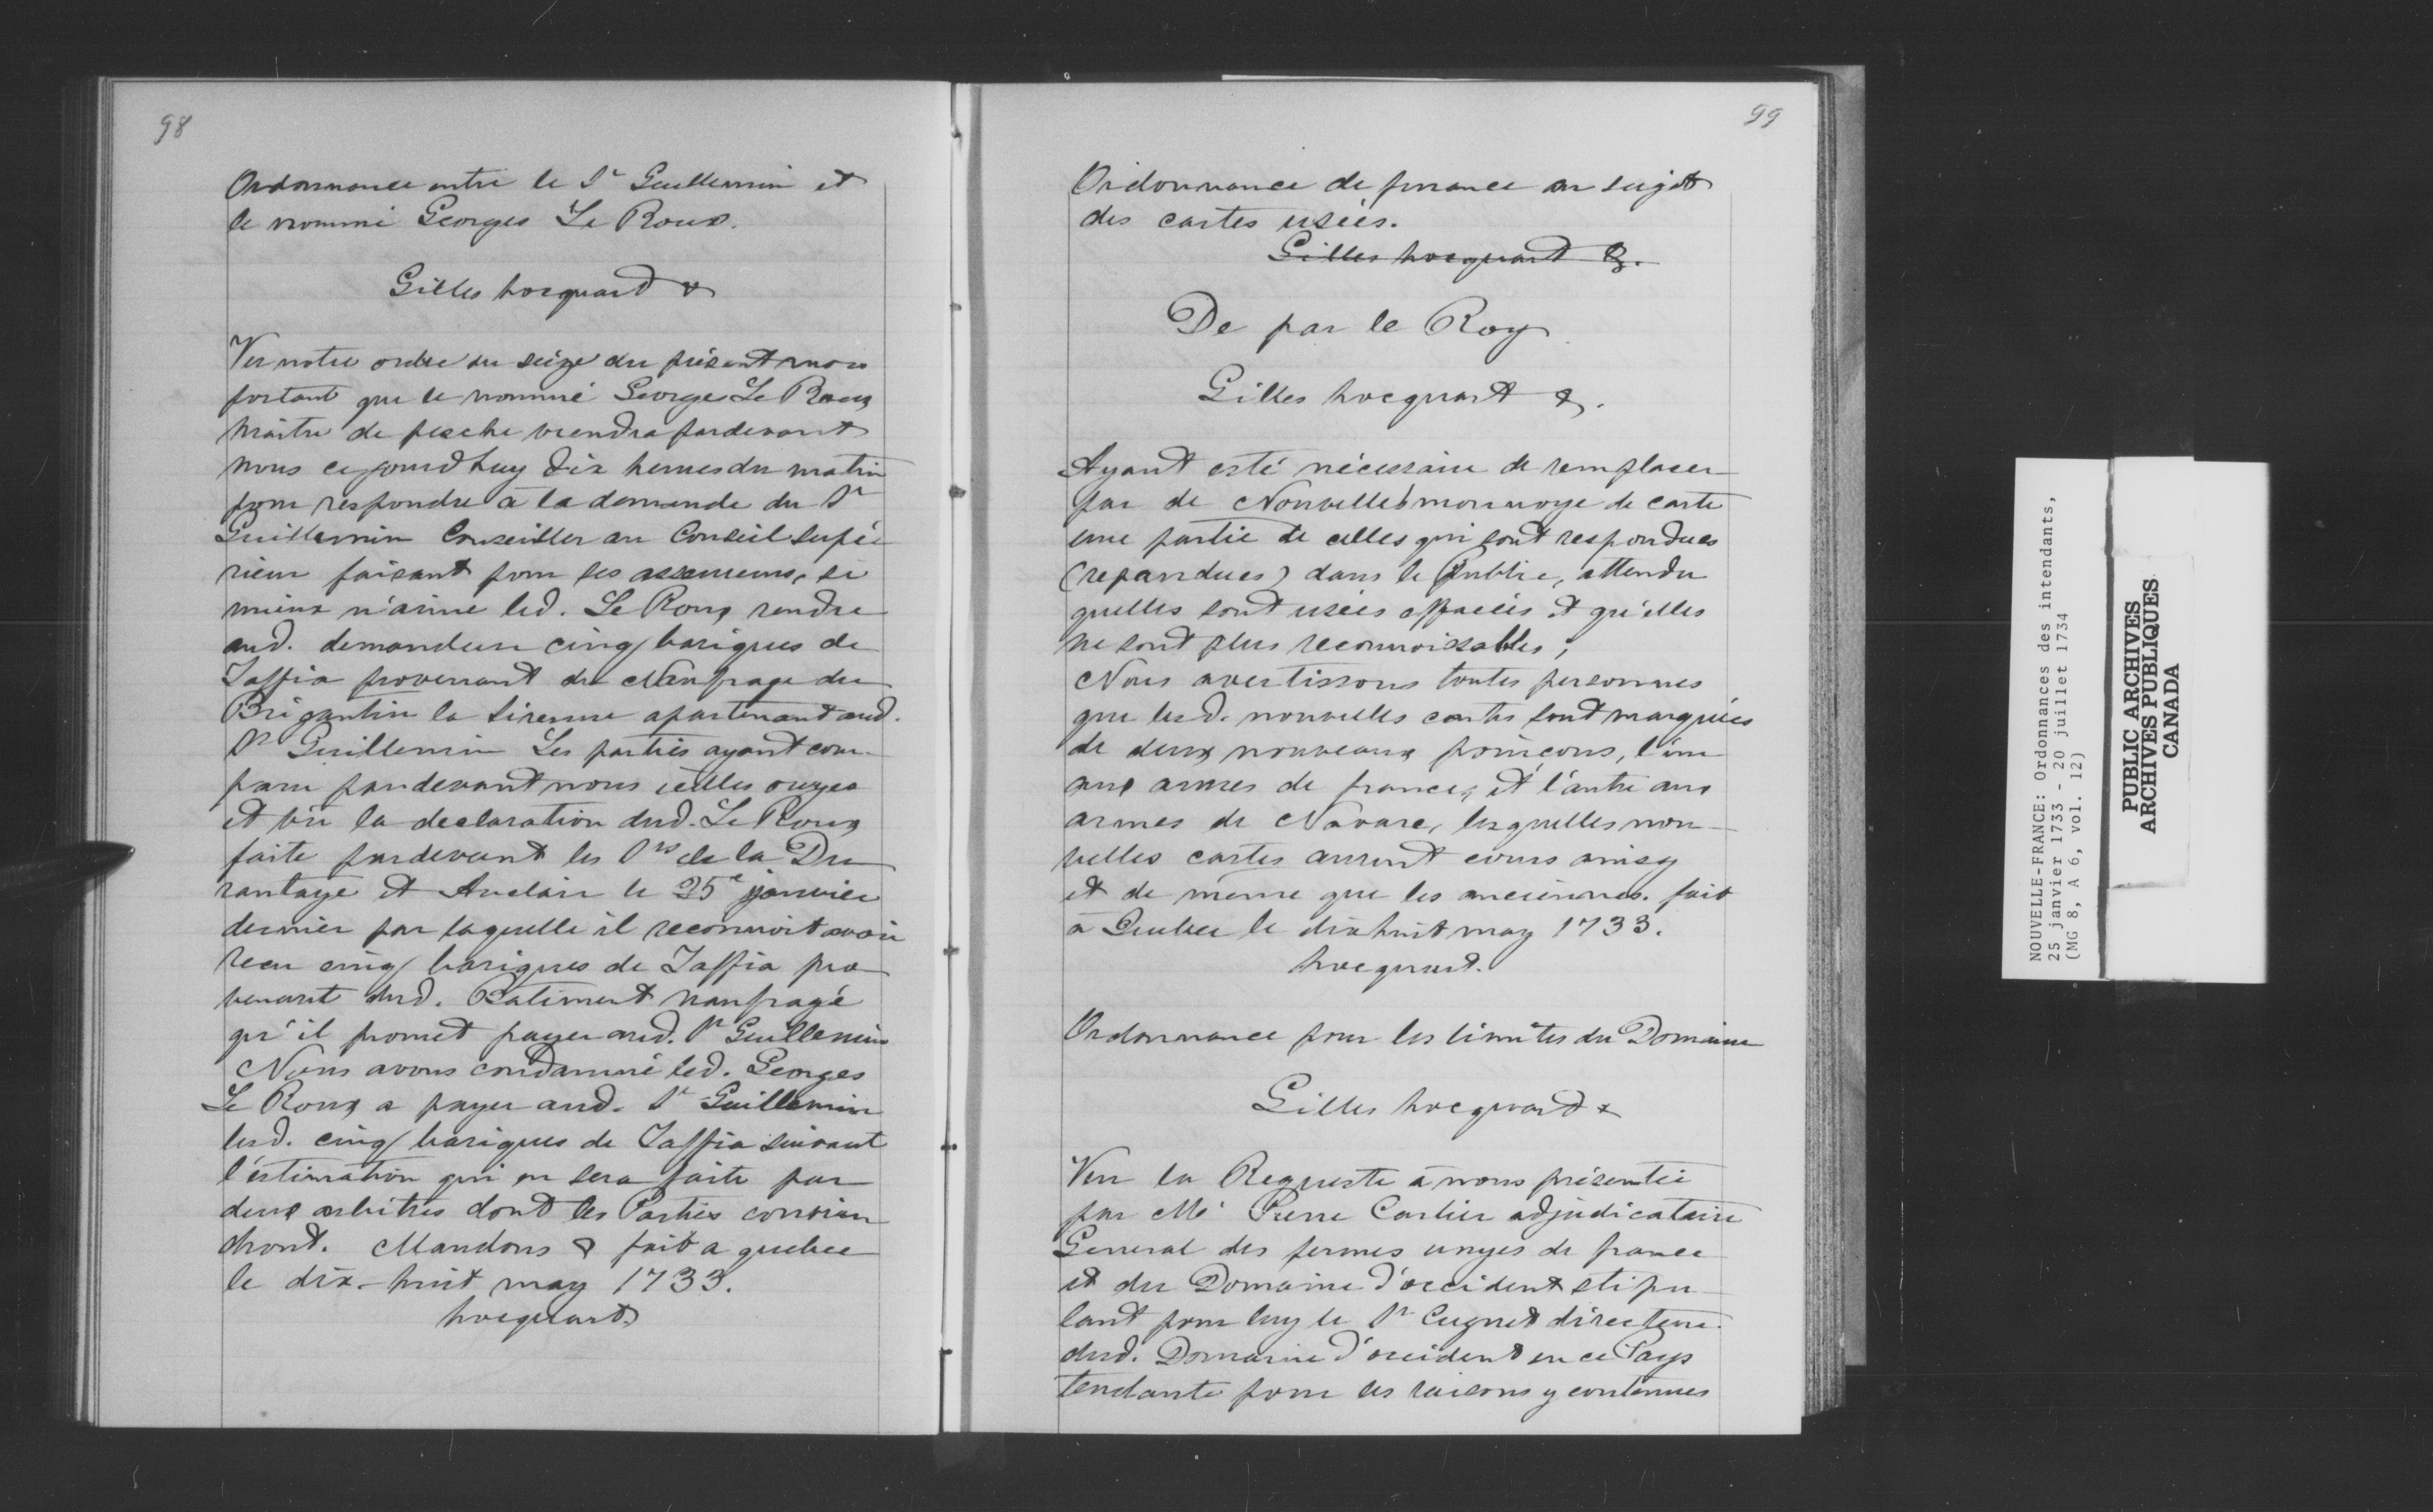 98
Ordonnance entre le Sr Guillemin et
le nommé Georges Le Roux.
Gilles hocquart &
Vu notre ordre du seize du présent mois
portant que le nommé George Le Roux
Maitre de pesche viendra pardevant
nous cejourdhuy dix heures du matin
pour respondre à la demande du Sr
Guillemin Conseiller au Conseil supé
rieur faisant pour ses assureurs, si
mieux n'aime led. Le Roux rendre
aud. demandeur cinq bariques de
Taffia provenant du Naufrage du
Brigantin la Sirenne apartenant aud.
Sr Guillemin Les parties ayant com-
paru pardevant nous icelles ouyes
et vû la declaration dud. Le Roux
faite pardevant les Srs de la Du
rantaye et Auclair le 25e janvier
dernier par laquelle il reconnoit avoir
recu cinq bariques de Taffia pro
venant dud. Batiment naufragé
qu'il promet payer aud. Sr Guillemin
Nous avons condamné led. Georges
Le Roux a payer aud. Sr Guillemin
lesd. cinq bariques de Taffia suivant
l'estimation qui en sera faite par
deux arbitres dont les Parties convien
dront. Mandons & fait a quebec
le dix-huit may 1733.
hocquart
99
Ordonnance de finance au sujet
des cartes usées.
Gilles hocquart &.
De par le Roy
Gilles hocquart &.
Ayant esté nécessaire de remplacer
par de Nouvelles monnoye de carte
une partie de celles qui sont respondues
(repandues) dans le Public, attendu
quelles sont usées effacées et qu'elles
ne sont plus reconnoissables;
Nous avertissons toutes personnes
que lesd. nouvelles cartes sont marquées
de deux nouveaux poinçons, l'un
aux armes de france, et l'autre aux
armes de Navare, lesquelles nou-
velles cartes auront cours ainsy
et de meme que les anciennes. fait
à Quebec le dix huit may 1733.
hocquart.
Ordonnance pour les limites du Domaine
Gilles hocquart &
Veu la Requeste à nous présentée
par Me Pierre Carlier adjudicataire
General des fermes unyes de france
et du Domaine d'occident stipu-
lant pour luy le Sr Cugnet directeur
dud. Domaine d'occident en ce Pays
tendante pour les raisons y contenues
NOUVELLE-FRANCE: Ordonnances des intendants,
25 janvier 1733 - 20 juillet 1734
(MG 8, A 6, vol. 12)
PUBLIC ARCHIVES
ARCHIVES PUBLIQUES
CANADA